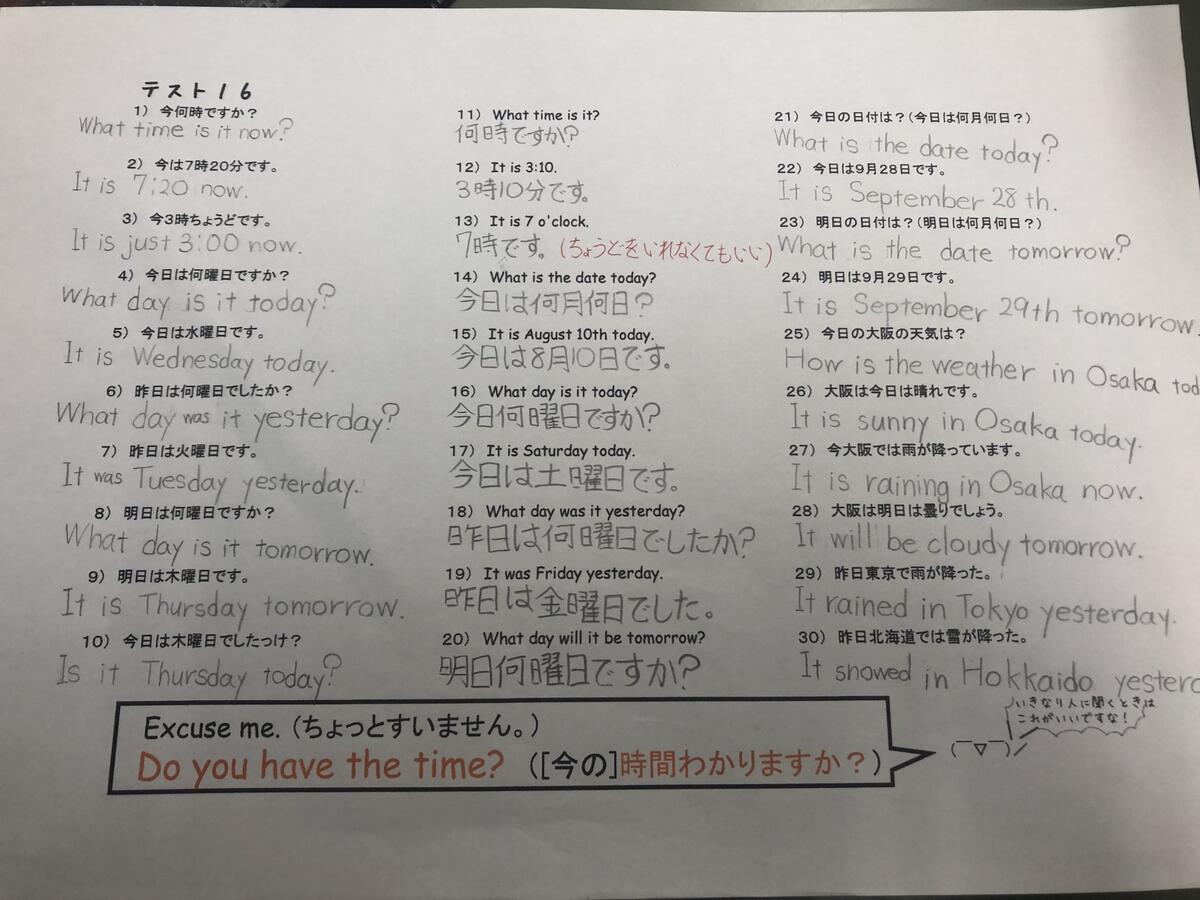 テスト16
1) 今何時ですか？
What time is it now?
2) 今は7時20分です。
It is 7:20 now.
3) 今3時ちょうどです。
It is just 3:00 now.
4) 今日は何曜日ですか？
What day is it today?
5) 今日は水曜日です。
It is Wednesday today.
6) 昨日は何曜日でしたか？
What day was it yesterday?
7) 昨日は火曜日です。
It was Tuesday yesterday.
8) 明日は何曜日ですか？
What day is it tomorrow.
9) 明日は木曜日です。
It is Thursday tomorrow.
10) 今日は木曜日でしたっけ？
Is it Thursday today?
11) What time is it?
何時ですか?
12) It is 3:10.
3時10分です。
13) It is 7 o'clock.
7時です。(ちょうどをいれなくてもいい)
14) What is the date today?
今日は何月何日?
15) It is August 10th today.
今日は8月10日です。
16) What day is it today?
今日何曜日ですか?
17) It is Saturday today.
今日は土曜日です。
18) What day was it yesterday?
昨日は何曜日でしたか?
19) It was Friday yesterday.
昨日は金曜日でした。
20) What day will it be tomorrow?
明日何曜日ですか?
21) 今日の日付は？(今日は何月何日？)
What is the date today?
22) 今日は9月28日です。
It is September 28th.
23) 明日の日付は？(明日は何月何日？)
What is the date tomorrow?
24) 明日は9月29日です。
It is September 29th tomorrow.
25) 今日の大阪の天気は？
How is the weather in Osaka tod
26) 大阪は今日は晴れです。
It is sunny in Osaka today.
27) 今大阪では雨が降っています。
It is raining in Osaka now.
28) 大阪は明日は曇りでしょう。
It will be cloudy tomorrow.
29) 昨日東京で雨が降った。
It rained in Tokyo yesterday.
30) 昨日北海道では雪が降った。
It snowed in Hokkaido yester
Excuse me. (ちょっとすいません。)
Do you have the time? ([今の]時間わかりますか？)
いきなり人に聞くときは
これがいいですな！
(￣▽￣)